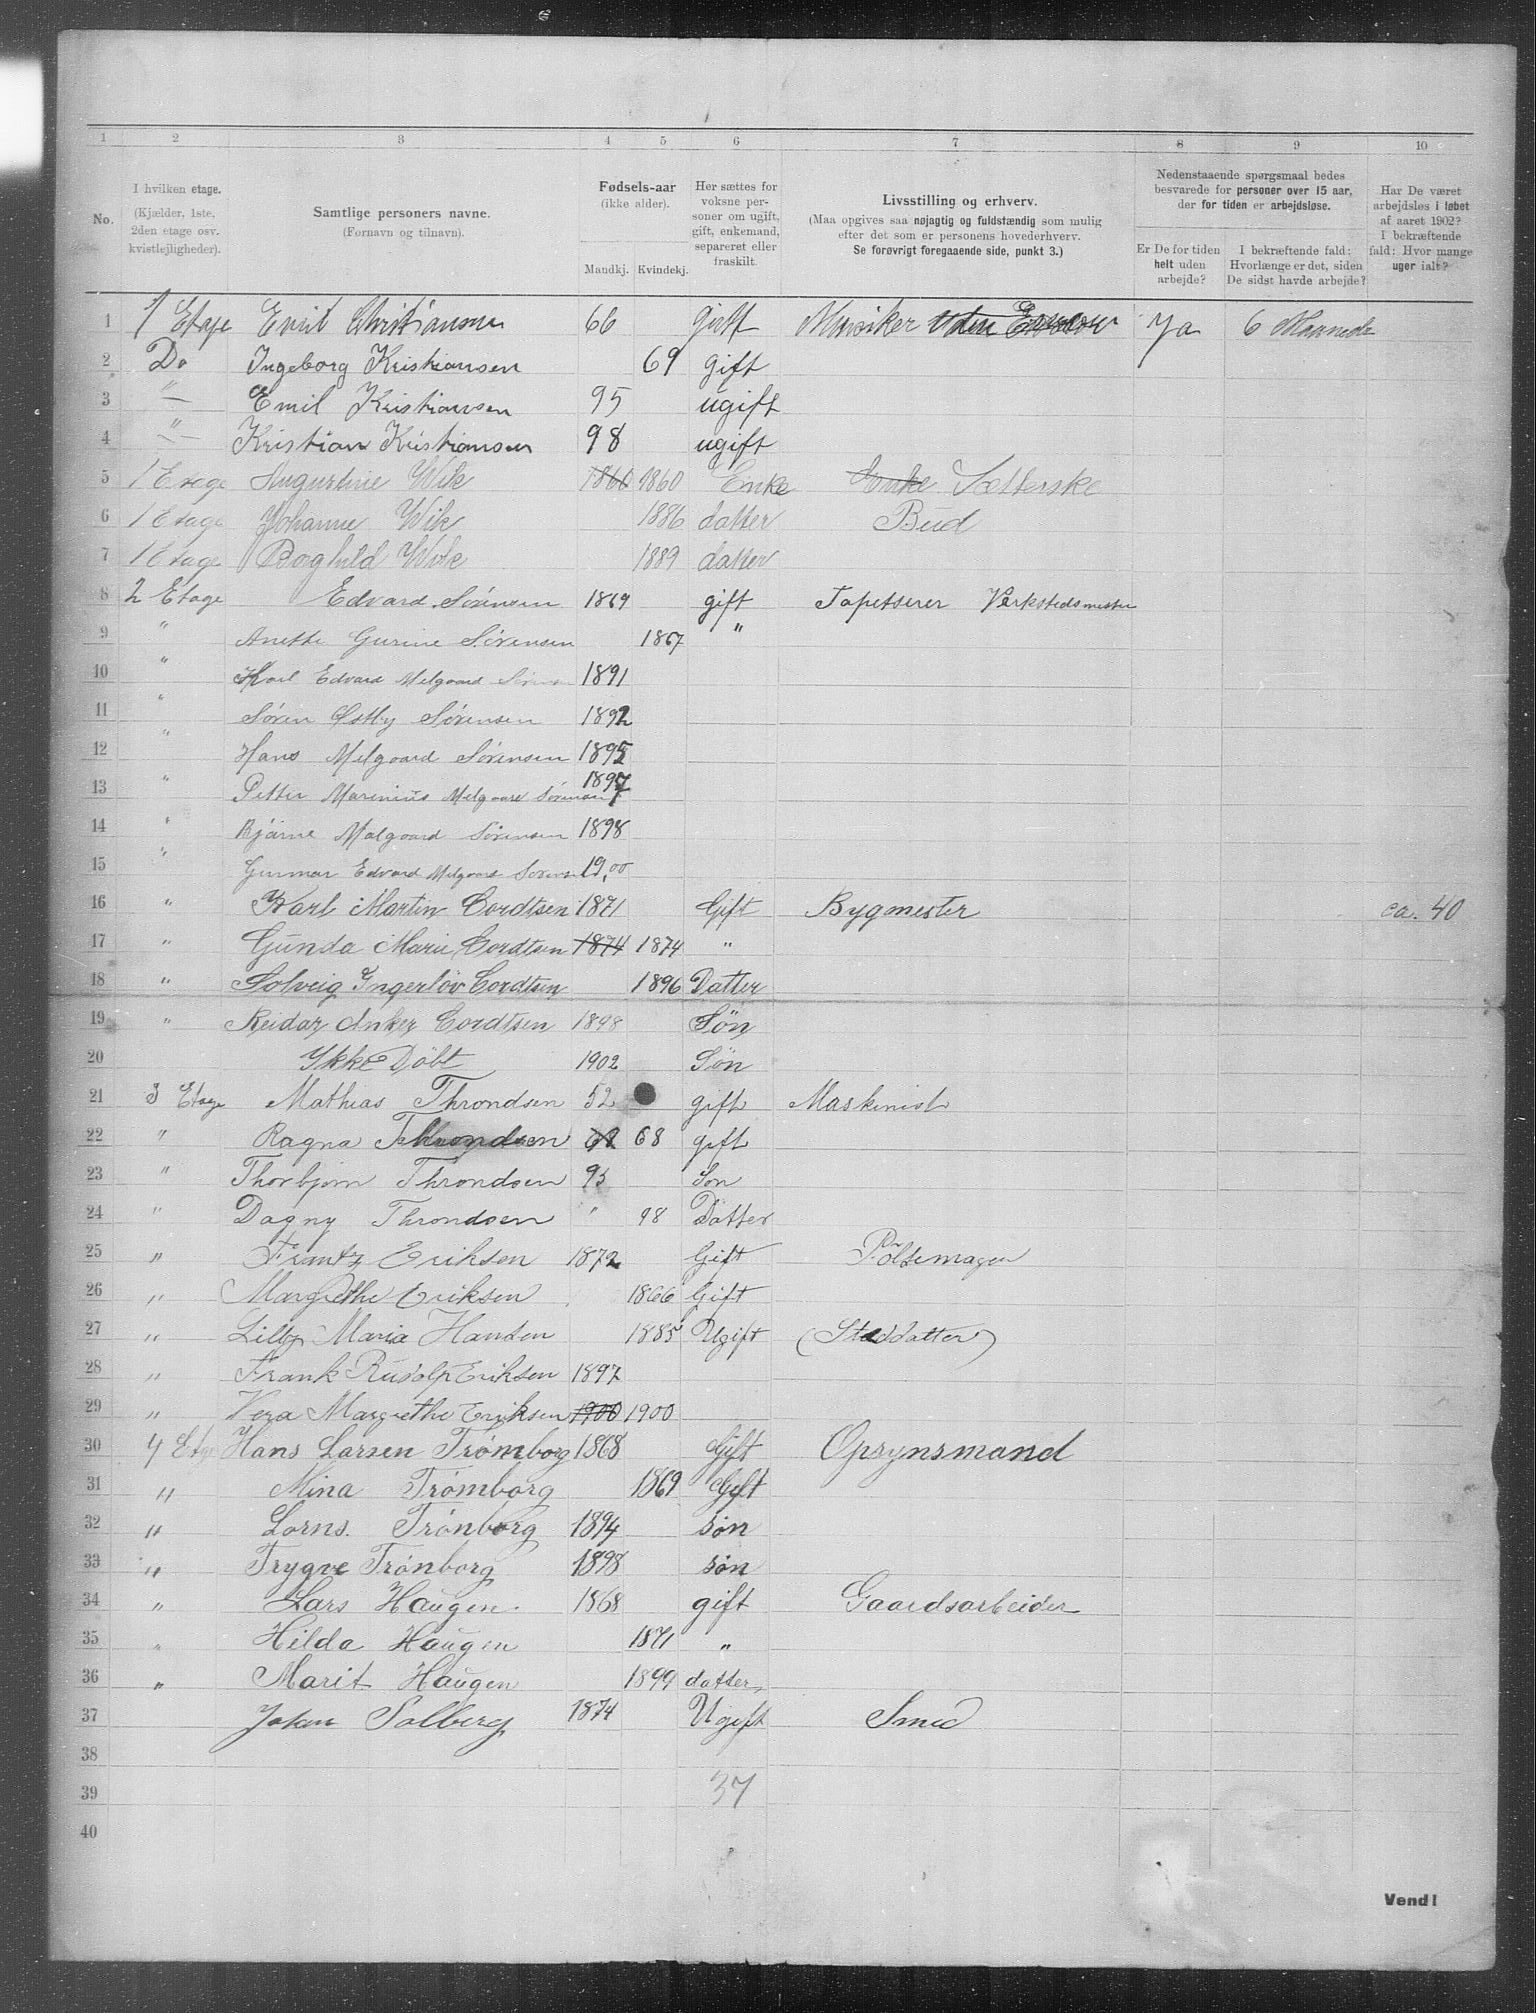 1 2 3 4 5 6 7 8 9 10
No.
I hvilken etage.
(Kjælder, 1ste,
2den etage osv.
kvistlejligheder).
Samtlige personers navne.
(Fornavn og tilnavn).
Fødsels-aar
(ikke alder).
Mandkj. Kvindekj.
Her sættes for
voksne per-
soner om ugift,
gift, enkemand,
separeret eller
fraskilt.
Livsstilling og erhverv.
(Maa opgives saa nøjagtig og fuldstændig som mulig
efter det som er personens hovederhverv.
Se forøvrigt foregaaende side, punkt 3.)
Nedenstaaende spørgsmaal bedes
besvarede for personer over 15 aar,
der for tiden er arbejdsløse.
Er De for tiden
helt uden
arbejde?
I bekræftende fald:
Hvorlænge er det, siden
De sidst havde arbejde?
Har De været
arbejdsløs i løbet
af aaret 1902?
I bekræftende
fald: Hvor mange
uger ialt?
1 1 Etage Emil Christiansen 66 gift Musiker uden Erhverv Ja 6 Maaneder
2 Do Ingeborg Kristiansen 69 gift
3 " Emil Kristiansen 95 ugift
4 " Kristian Kristiansen 98 ugift
5 1 Etage Augustine Wik 1860 1860 Enke Enke Sætterske
6 1 Etage Johanne Wik 1886 datter Bud
7 1 Etage Borghild Wik 1889 datter
8 2 Etage Edvard Sørensen 1869 gift Tapetserer Verkstedsmester
9 " Anette Gurine Sørensen 1867 "
10 " Karl Edvard Melgaard Sørensen 1891
11 " Søren Østby Sørensen 1892
12 " Hans Melgaard Sørensen 1895
13 " Petter Marinius Melgaard Sørensen 1897
14 " Bjarne Malgaard Sørensen 1898
15 " Gunnar Edvard Melgaard Sørensen 19,00
16 " Karl Martin Cordtsen 1871 Gift Bygmester ca. 40
17 " Gunda Marie Cordtsen 1874 1874 "
18 " Solveig Ingerløv Cordtsen 1896 Datter
19 " Reidar Anker Cordtsen 1898 Søn
20 Ykke Døbt 1902 Søn
21 3 Etage Mathias Throndsen 52 gift Maskinist
22 " Ragna Throndsen 68 68 gift
23 " Thorbjørn Throndsen 95 Søn
24 " Dagny Throndsen " 98 Datter
25 " Frantz Eriksen 1872 Gift Pølsemager
26 " Margrethe Eriksen 1866 Gift
27 " Lilly Maria Hansen 1885 Ugift (Steddatter)
28 " Frank Rudolp Eriksen 1897
29 " Vera Margrethe Eriksen 1900 1900
30 4 Etage Hans Larsen Trømborg 1868 Gift Opsynsmand
31 " Mina Trømborg 1869 Gift
32 " Lorns. Trønborg 1894 søn
33 " Trygve Trønborg 1898 søn
34 " Lars Haugen. 1868 gift Gaardsarbeider
35 " Hilda Haugen 1871 "
36 " Marit Haugen 1899 datter,
37 Johan Solberg 1874 Ugift Smed
38
39 37
40
Vend!